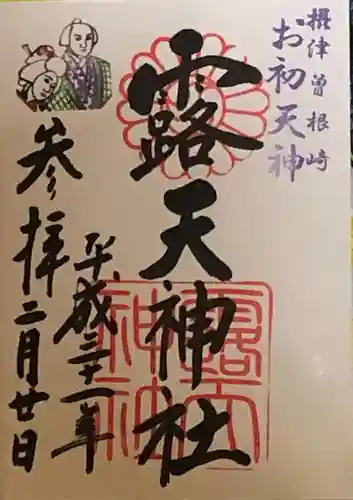 摂津曽根崎
お初天神
露天神社
平成三十一年
二月廿日
参拝
露天神社